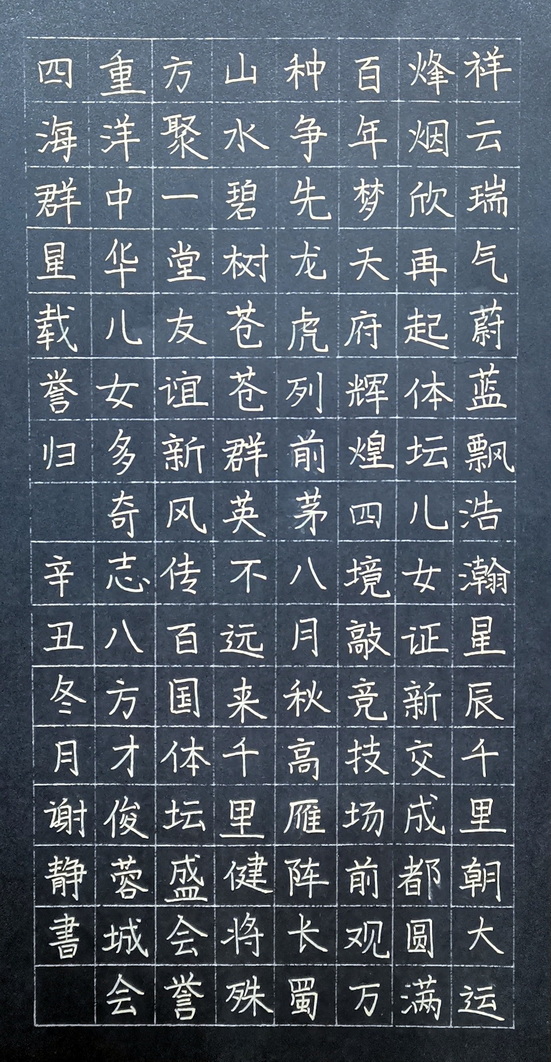 祥云瑞气蔚蓝飘浩瀚星辰千里朝大运
烽烟欣再起体坛儿女证新交成都圆满
百年梦天府辉煌四境敲竞技场前观万
种争先龙虎列前茅八月秋高雁阵长蜀
山水碧树苍苍群英不远来千里健将殊
方聚一堂友谊新风传百国体坛盛会誉
重洋中华儿女多奇志八方才俊蓉城会
四海群星载誉归 辛丑冬月谢静書